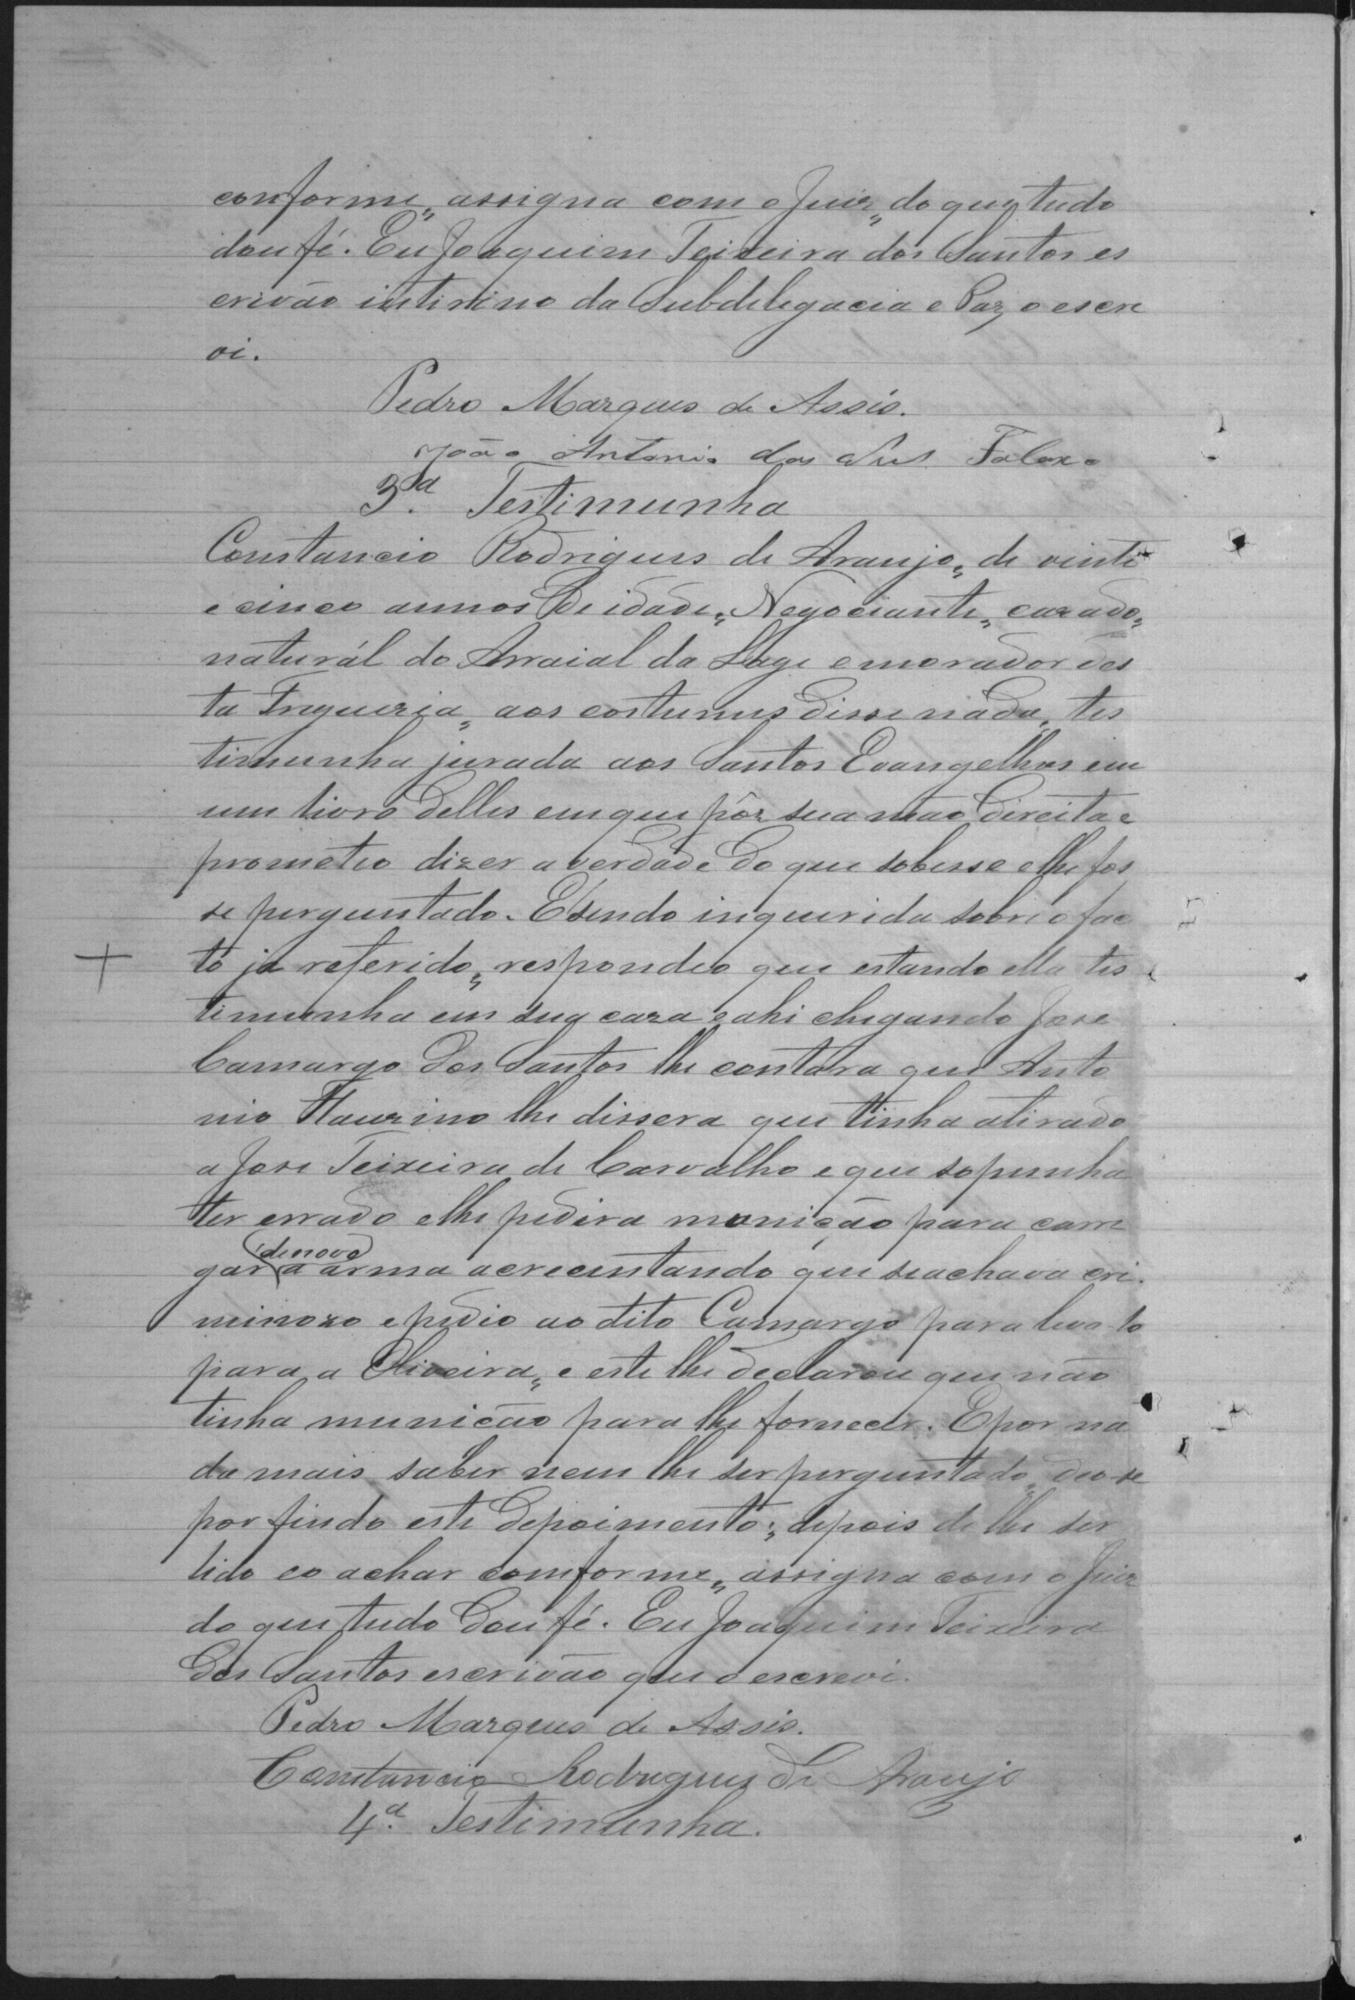 conforme„ assigna com o Juiz„ do que tudo
dou fé. Eu Joaquim Teixeira dos Santos es
crivão intirino da Subdelegacia e Paz, o escre
vi.
Pedro Marques de Assis.
João Antonio dos
3ª. Testimunha
Constancio Rodrigues de Araujo„ de vinte
e cinco annos de idade„ Negociante„ cazado„
naturál do Arraial da Lage e morador des
ta Freguezia„ aos costumes disse nada„ tes
timunha jurada aos Santos Evangelhos em
um livro delles em que pôz sua mão direita e
prometeo dizer a verdade do que sobesse e lhe fos
se perguntado. E sendo inquerida sobre o fac
to ja referido„ respondeo que estando ella tes
timunha em sua caza e ahi chegando Jose
Camargo dos Santos lhe contára que Anto
nio Flaurino lhe dissera que tinha atirado
a Jose Teixeira de Carvalho e que sopunha
ter errado e lhe pedira monição para carre
gar (denovo) a arma acrecentando que se achava cri
minozo e pedio ao dito Camargo para leva lo
para a Oliveira„ e este lhe declarou que não
tinha munição para lhe fornecer. E por na
da mais saber nem lhe ser perguntado„ deo-se
por findo este depoimento;„ depois de lhe ser
lido e o achar comforme„ assigna com o Juiz
do que tudo dou fé. Eu Joaquim Teixeira
dos Santos escrivão que o escrevi.
Pedro Marques de Assis.
Constancio Rodrigues de Araujo
4ª. Testimunha.